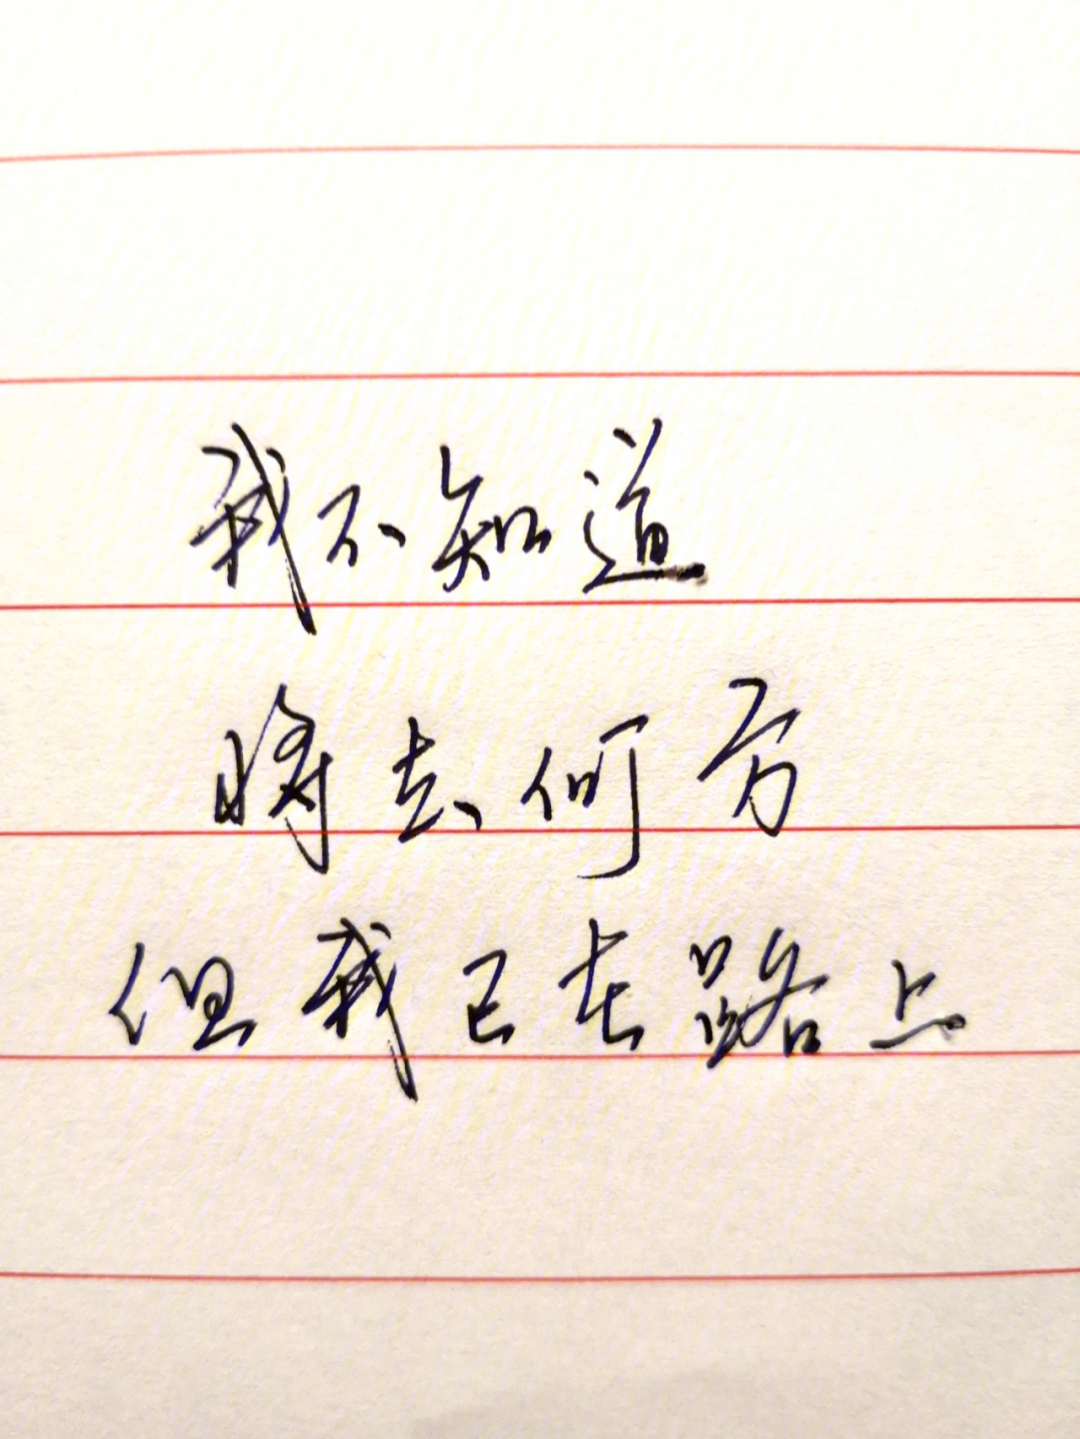 我不知道
将去何方
但我已在路上